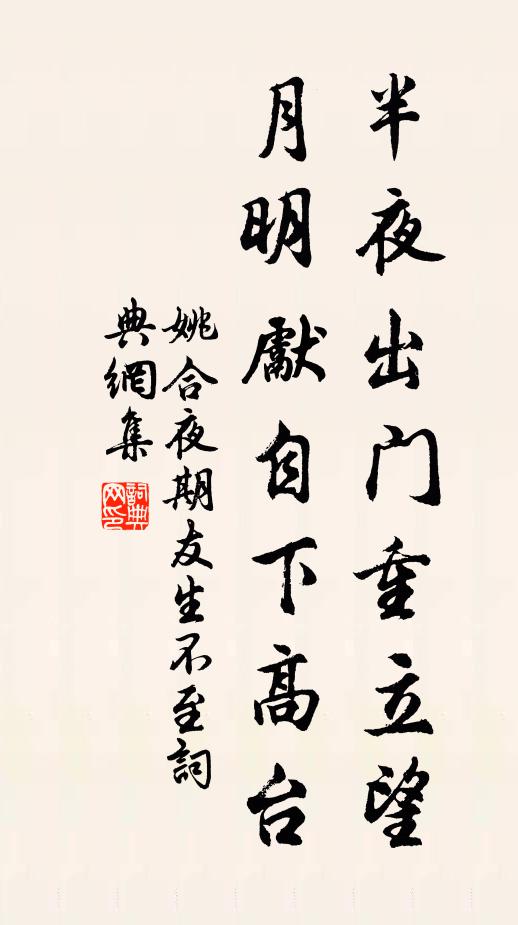 半夜出门重立望
月明獻自下高台
姚合夜期友生不至詞
典網集
詞典
网印